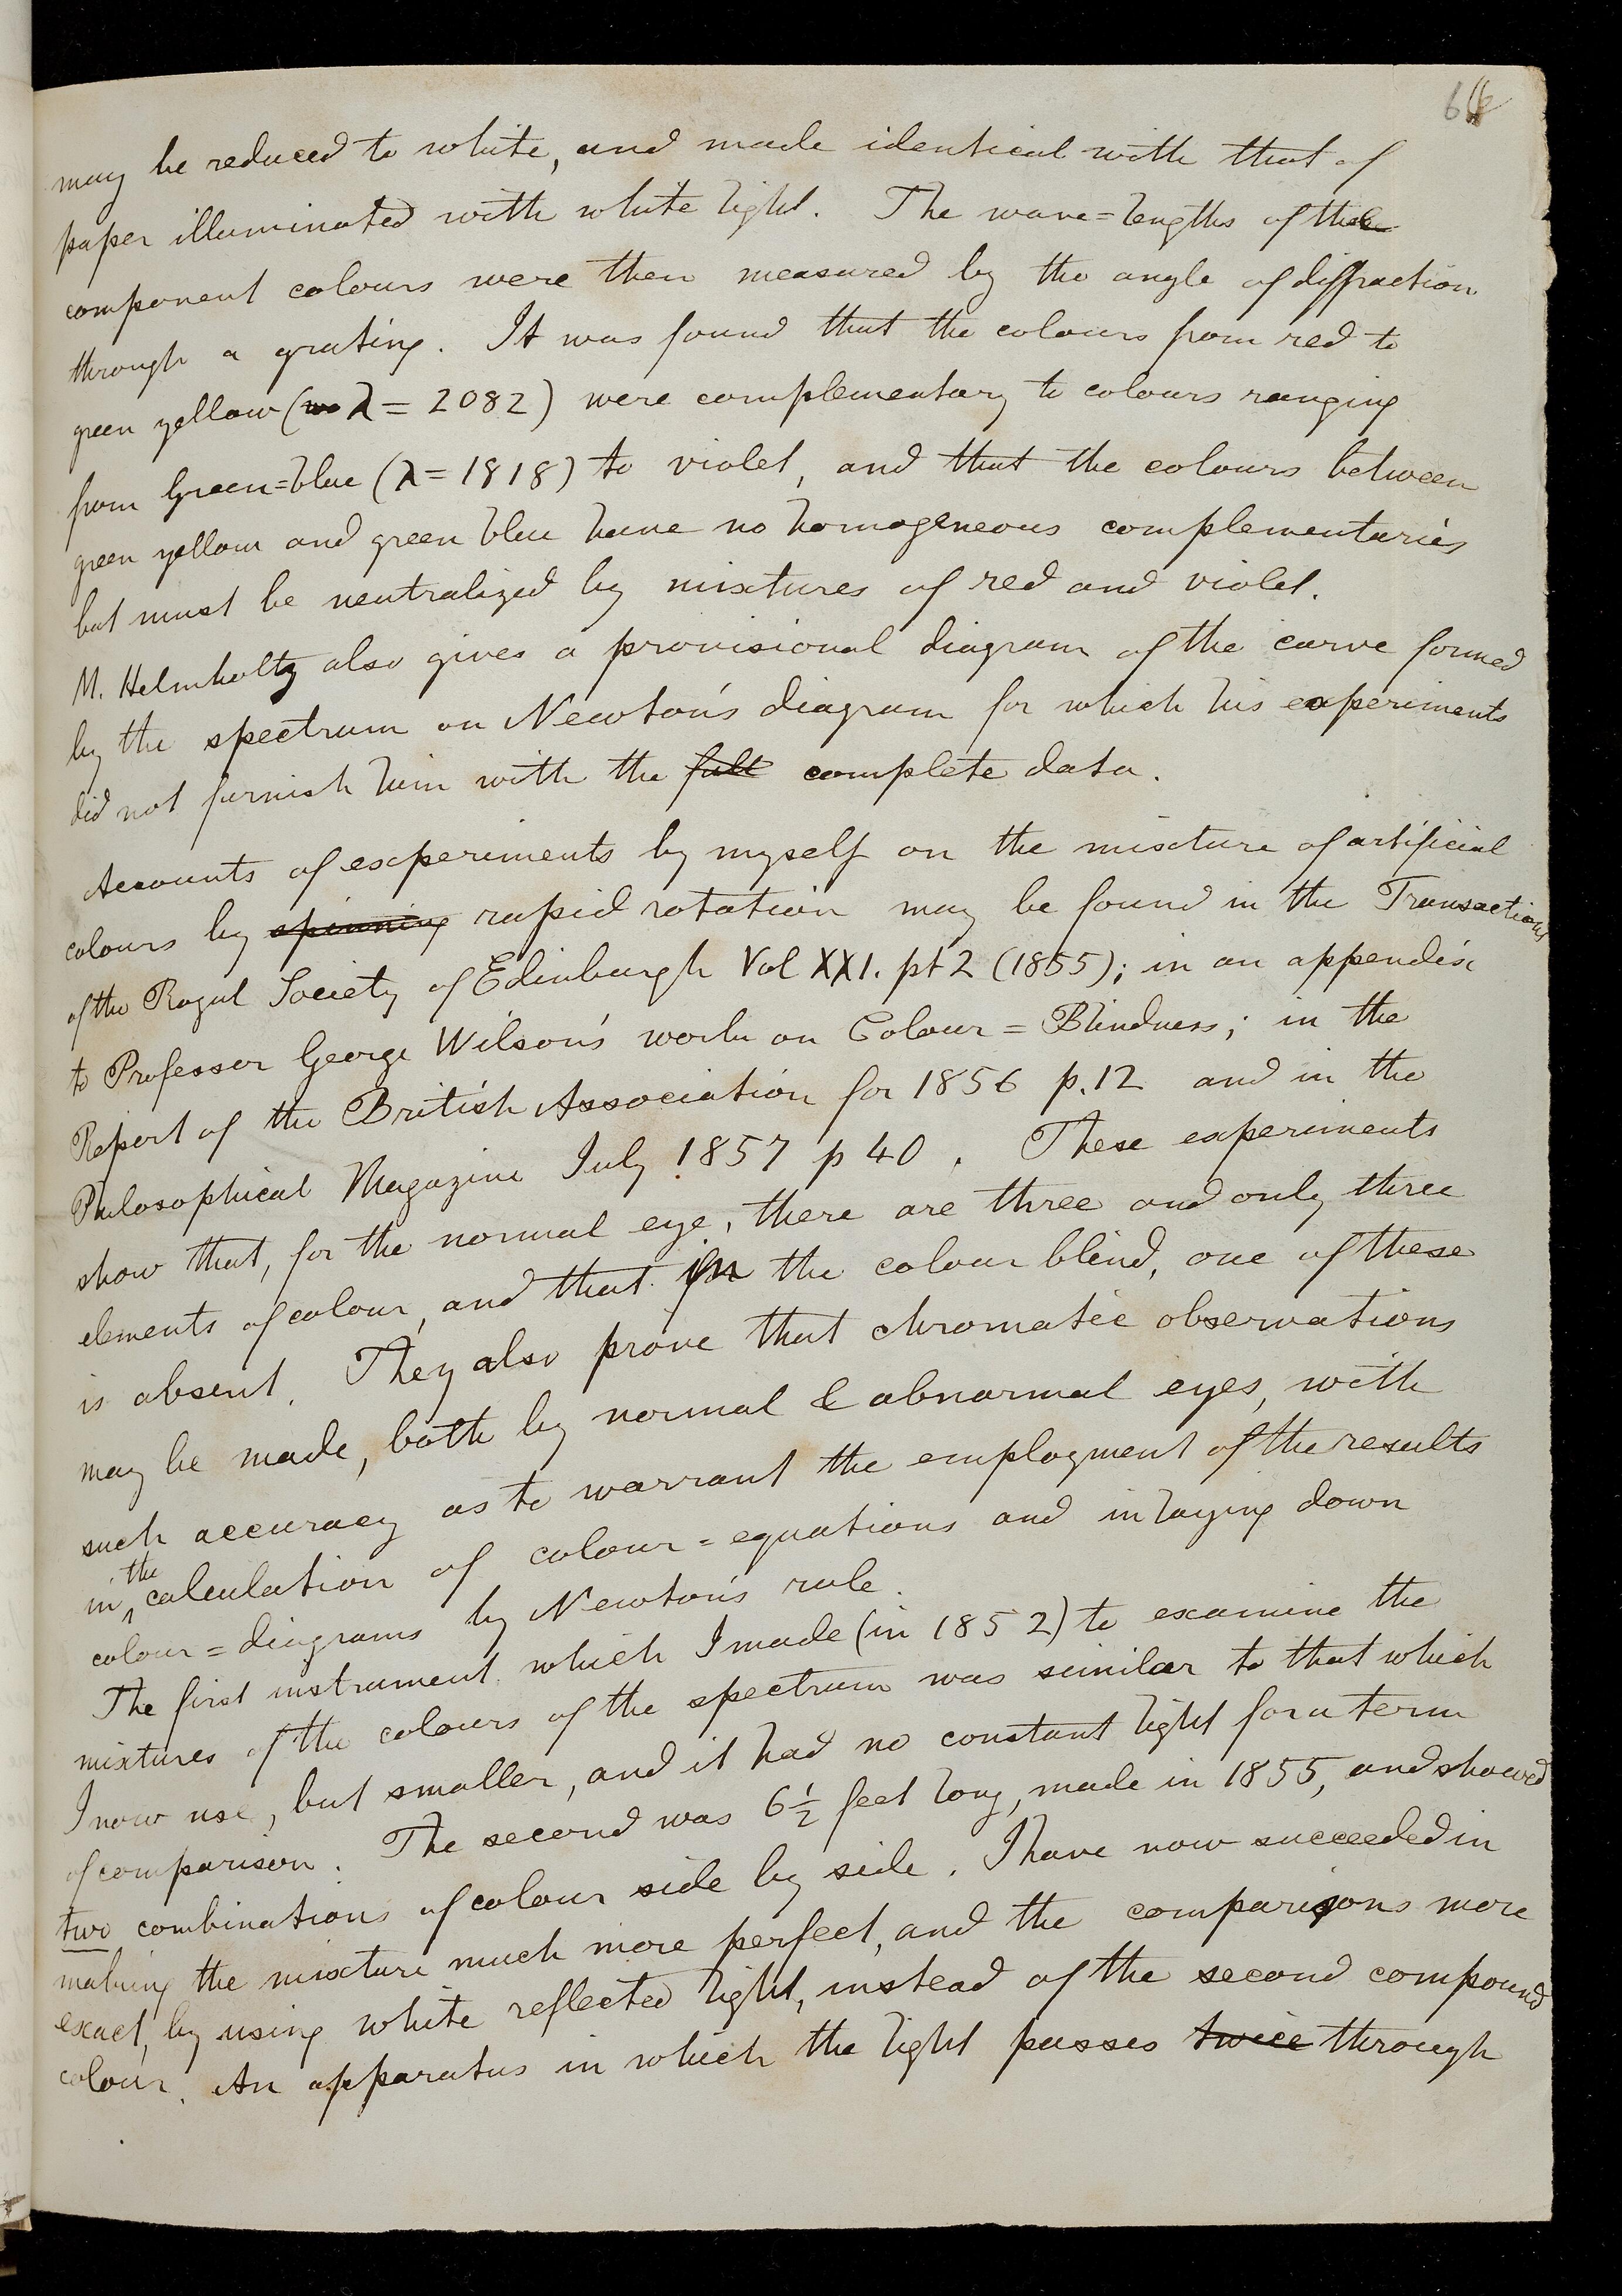 may be reduced to white, and made identical with that of
paper illuminated with white light. The wave=lengths of the
component colours were then measured by the angle of diffraction
through a grating. It was found that the colours from red to
green yellow (λ = 2082) were complementary to colours ranging
from Green=blue (λ = 1818) to violet, and that the colours between
green yellow and green blue have no homogeneous complementaries
but must be neutralized by mixtures of red and violet.
M. Helmholtz also gives a provisional diagram of the curve formed
by the spectrum on Newton's diagram for which his experiments
did not furnish him with the full complete data.
Accounts of experiments by myself on the mixture of artificial
colours by spinning rapid rotation may be found in the Transactions
of the Royal Society of Edinburgh Vol XXI. pt 2 (1855); in an appendix
to Professor George Wilson's work on Colour = Blindness; in the
Report of the British Association for 1856 p. 12 and in the
Philosophical Magazine July 1857 p 40. These experiments
show that, for the normal eye, there are three and only three
elements of colour, and that in the colour blind, one of these
is absent. They also prove that chromatic observations
may be made, both by normal & abnormal eyes, with
such accuracy as to warrant the employment of the results
in the calculation of colour = equations and in laying down
colour = diagrams by Newton's rule.
The first instrument which I made (in 1852) to examine the
mixtures of the colours of the spectrum was similar to that which
I now use, but smaller, and it had no constant light for a term
of comparison. The second was 6½ feet long, made in 1855, and showed
two combinations of colour side by side. I have now succeeded in
making the mixture much more perfect, and the comparisons more
exact, by using white reflected light, instead of the second compound
colour. An apparatus in which the light passes twice through